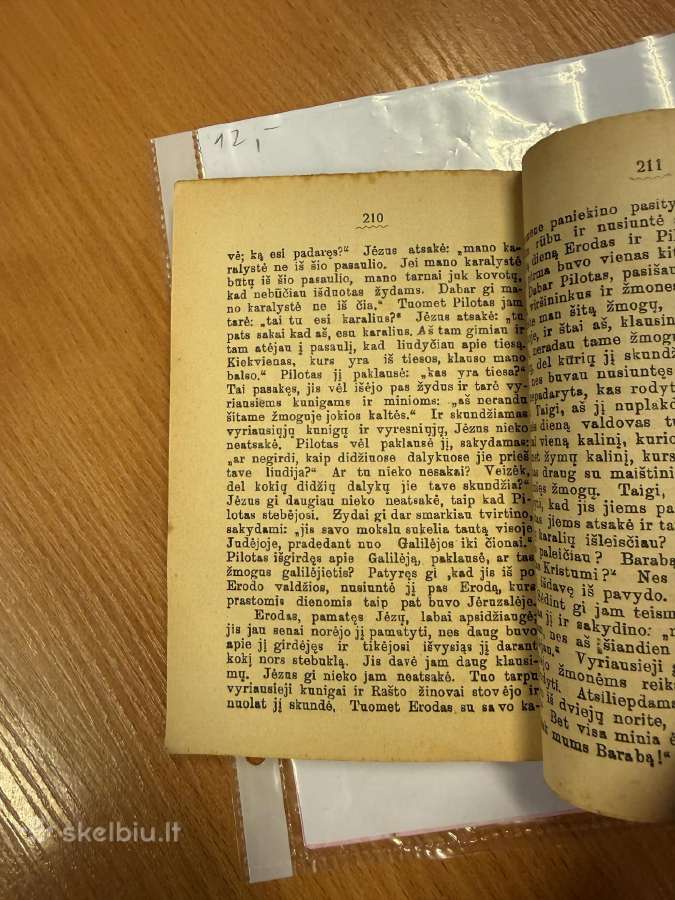 12,-
210
vė; ką esi padaręs?" Jėzus atsakė: „mano ka-
ralystė ne iš šio pasaulio. Jei mano karalystė
būtų iš šio pasaulio, mano tarnai juk kovotų,
kad nebūčiau išduotas žydams. Dabar gi ma-
no karalystė ne iš čia." Tuomet Pilotas jam
tarė: „tai tu esi karalius?" Jėzus atsakė: „tu
pats sakai kad aš, esu karalius. Aš tam gimiau ir
tam atėjau į pasaulį, kad liudyčiau apie tiesą.
Kiekvienas, kurs yra iš tiesos, klauso mano
balso." Pilotas jį paklausė: „kas yra tiesa?"
Tai pasakęs, jis vėl išėjo pas žydus ir tarė vy-
riausiems kunigams ir minioms: „aš nerandu
šitame žmoguje jokios kaltės." Ir skundžiamas
vyriausiųjų kunigų ir vyresniųjų, Jėzus nieko
neatsakė. Pilotas vėl paklausė jį, sakydamas:
„ar negirdi, kaip didžiuose dalykuose jie prieš
tave liudija?" Ar tu nieko nesakai? Veizėk,
del kokių didžių dalykų jie tave skundžia?"
Jėzus gi daugiau nieko neatsakė, taip kad Pi-
lotas stebėjosi. Zydai gi dar smarkiau tvirtino,
sakydami: „jis savo mokslu sukelia tautą visoje
Judėjoje, pradedant nuo Galilėjos iki čionai."
Pilotas išgirdęs apie Galilėją, paklausė, ar tas
žmogus galilėjietis? Patyręs gi „kad jis iš po
Erodo valdžios, nusiuntė jį pas Erodą, kurs
prastomis dienomis taip pat buvo Jėruzalėje.
Erodas, pamatęs Jėzų, labai apsidžiaugė;
jis jau senai norėjo jį pamatyti, nes daug buvo
apie jį girdėjęs ir tikėjosi išvysiąs jį darant
kokį nors stebuklą. Jis davė jam daug klausi-
mų. Jėzus gi nieko jam neatsakė. Tuo tarpu
vyriausieji kunigai ir Rašto žinovai stovėjo ir
nuolat jį skundė. Tuomet Erodas su savo ka-
211
paniekino
rūbu ir nusiuntė
dieną Erodas ir
buvo vienas
Dabar Pilotas,
ir žmones
man šitą žmogų,
ir štai aš,
neradau tame
del kūrių jį
nes buvau nusiuntęs
kas
Taigi, aš jį
dieną valdovas
vieną kalinį,
žymų kalinį, kurs
draug su
žmogų. Taigi,
kad jis jiems
jiems atsakė ir
karalių išleisčiau?
paleičiau?
Kristumi?" Nes
išdavę iš pavydo.
gi jam
jį ir sakydino:
nes aš šiandien
Vyriausieji
žmonėms
Atsiliepdamas
iš dviejų norite,
Bet visa minia
mums Barabą!"
skelbiu.lt